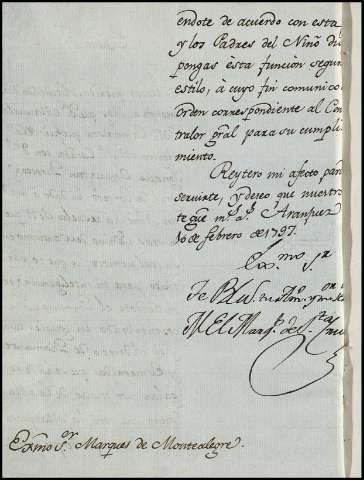 endote de acuerdo con esta
y los Padres del Niño dis
pongas esta función segun
estilo, à cuyo fin comunico
orden correspondiente al Con
tralor gral para su cumpli
miento.
Reytero mi afecto para
servirte, y deseo que nuestro
te gue ms as Aranjuez
10 de febrero de 1797.
Exmo Sr
Te B.L.M. tu
M El Marqs de Sta Cruz
Exmo Sor Marques de Montealegre.